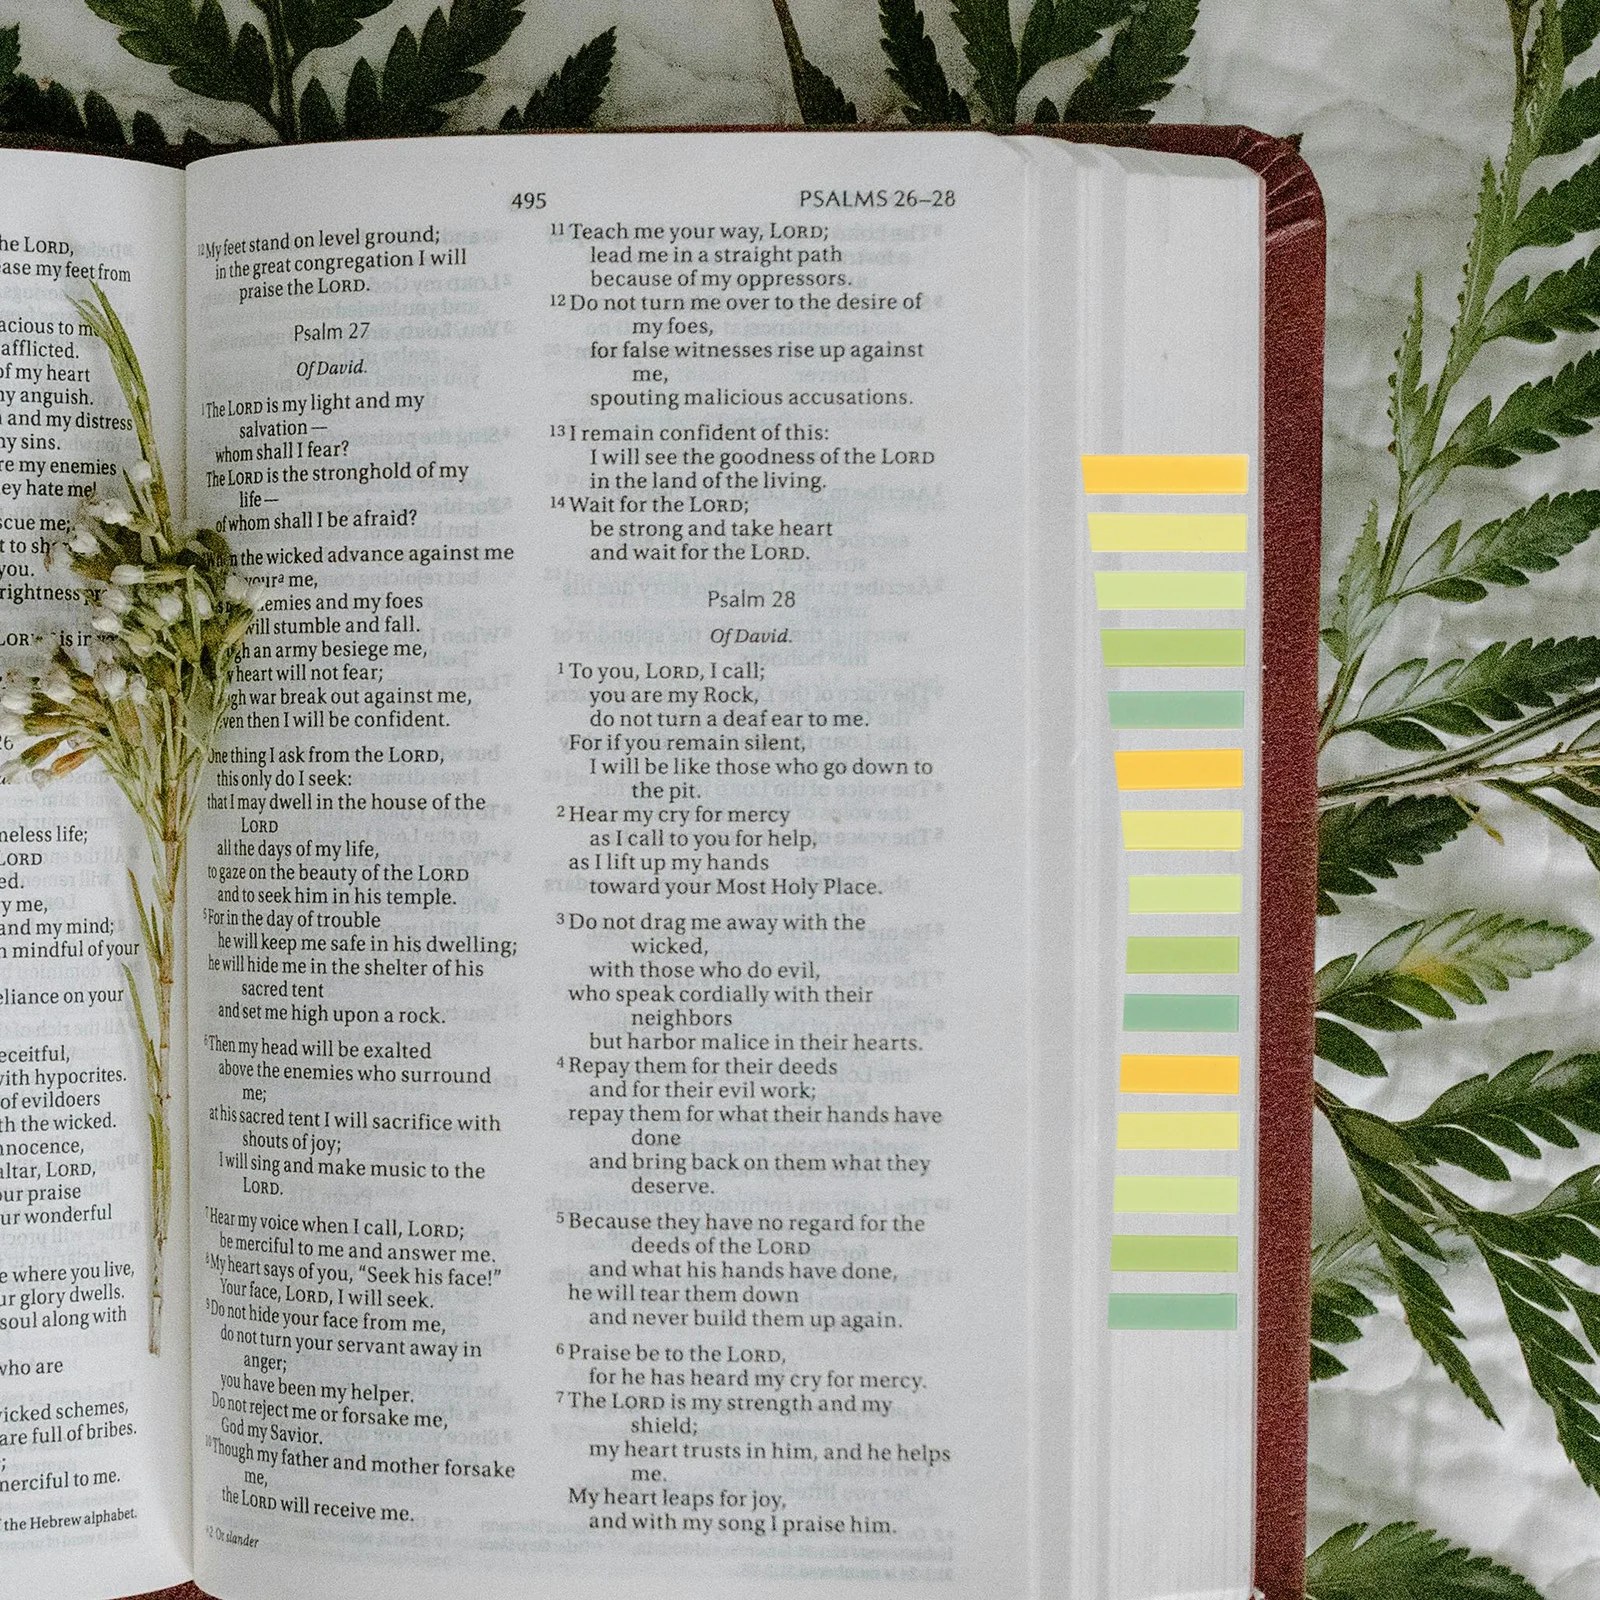 he LORD,
ase my feet from
acious to me
afflicted.
of my heart
ny anguish.
and my distress
ny sins.
re my enemies
ey hate me!
scue me;
t to
you.
rightness
LOR is in
26
neless life;
LORD
ed.
ry me,
and my mind;
n mindful of your
eliance on your
eceitful,
with hypocrites.
of evildoers
th the wicked.
nnocence,
altar, LORD,
our praise
ur wonderful
e where you live,
ur glory dwells.
soul along with
who are
vicked schemes,
are full of bribes.
;
merciful to me.
f the Hebrew alphabet.
495
PSALMS 26–28
12 My feet stand on level ground;
in the great congregation I will
praise the LORD.
Psalm 27
Of David.
1 The LORD is my light and my
salvation—
whom shall I fear?
The LORD is the stronghold of my
life—
of whom shall I be afraid?
the wicked advance against me
me,
emies and my foes
will stumble and fall.
gh an army besiege me,
heart will not fear;
gh war break out against me,
even then I will be confident.
One thing I ask from the LORD,
this only do I seek:
that I may dwell in the house of the
LORD
all the days of my life,
to gaze on the beauty of the LORD
and to seek him in his temple.
5 For in the day of trouble
he will keep me safe in his dwelling;
he will hide me in the shelter of his
sacred tent
and set me high upon a rock.
6 Then my head will be exalted
above the enemies who surround
me;
at his sacred tent I will sacrifice with
shouts of joy;
I will sing and make music to the
LORD.
7 Hear my voice when I call, LORD;
be merciful to me and answer me.
8 My heart says of you, “Seek his face!”
Your face, LORD, I will seek.
9 Do not hide your face from me,
do not turn your servant away in
anger;
you have been my helper.
Do not reject me or forsake me,
God my Savior.
10 Though my father and mother forsake
me,
the LORD will receive me.
a 2 Or slander
11 Teach me your way, LORD;
lead me in a straight path
because of my oppressors.
12 Do not turn me over to the desire of
my foes,
for false witnesses rise up against
me,
spouting malicious accusations.
13 I remain confident of this:
I will see the goodness of the LORD
in the land of the living.
14 Wait for the LORD;
be strong and take heart
and wait for the LORD.
Psalm 28
Of David.
1 To you, LORD, I call;
you are my Rock,
do not turn a deaf ear to me.
For if you remain silent,
I will be like those who go down to
the pit.
2 Hear my cry for mercy
as I call to you for help,
as I lift up my hands
toward your Most Holy Place.
3 Do not drag me away with the
wicked,
with those who do evil,
who speak cordially with their
neighbors
but harbor malice in their hearts.
4 Repay them for their deeds
and for their evil work;
repay them for what their hands have
done
and bring back on them what they
deserve.
5 Because they have no regard for the
deeds of the LORD
and what his hands have done,
he will tear them down
and never build them up again.
6 Praise be to the LORD,
for he has heard my cry for mercy.
7 The LORD is my strength and my
shield;
my heart trusts in him, and he helps
me.
My heart leaps for joy,
and with my song I praise him.